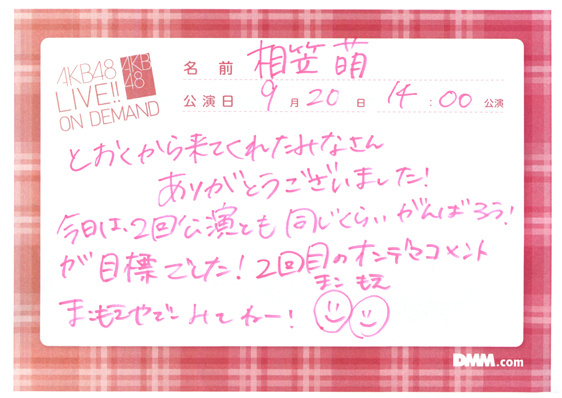 AKB48
LIVE!!
ON DEMAND
AKB
48
名前 相笠 萌
公演日 9月20日 14:00公演
とおくから来てくれたみなさん
ありがとうございました!
今日は、2回公演とも同じくらいがんばろう!
が目標でした! 2回目のオンデマコメント
まこ もえ
まこもえやでーみてねー!
DMM.com